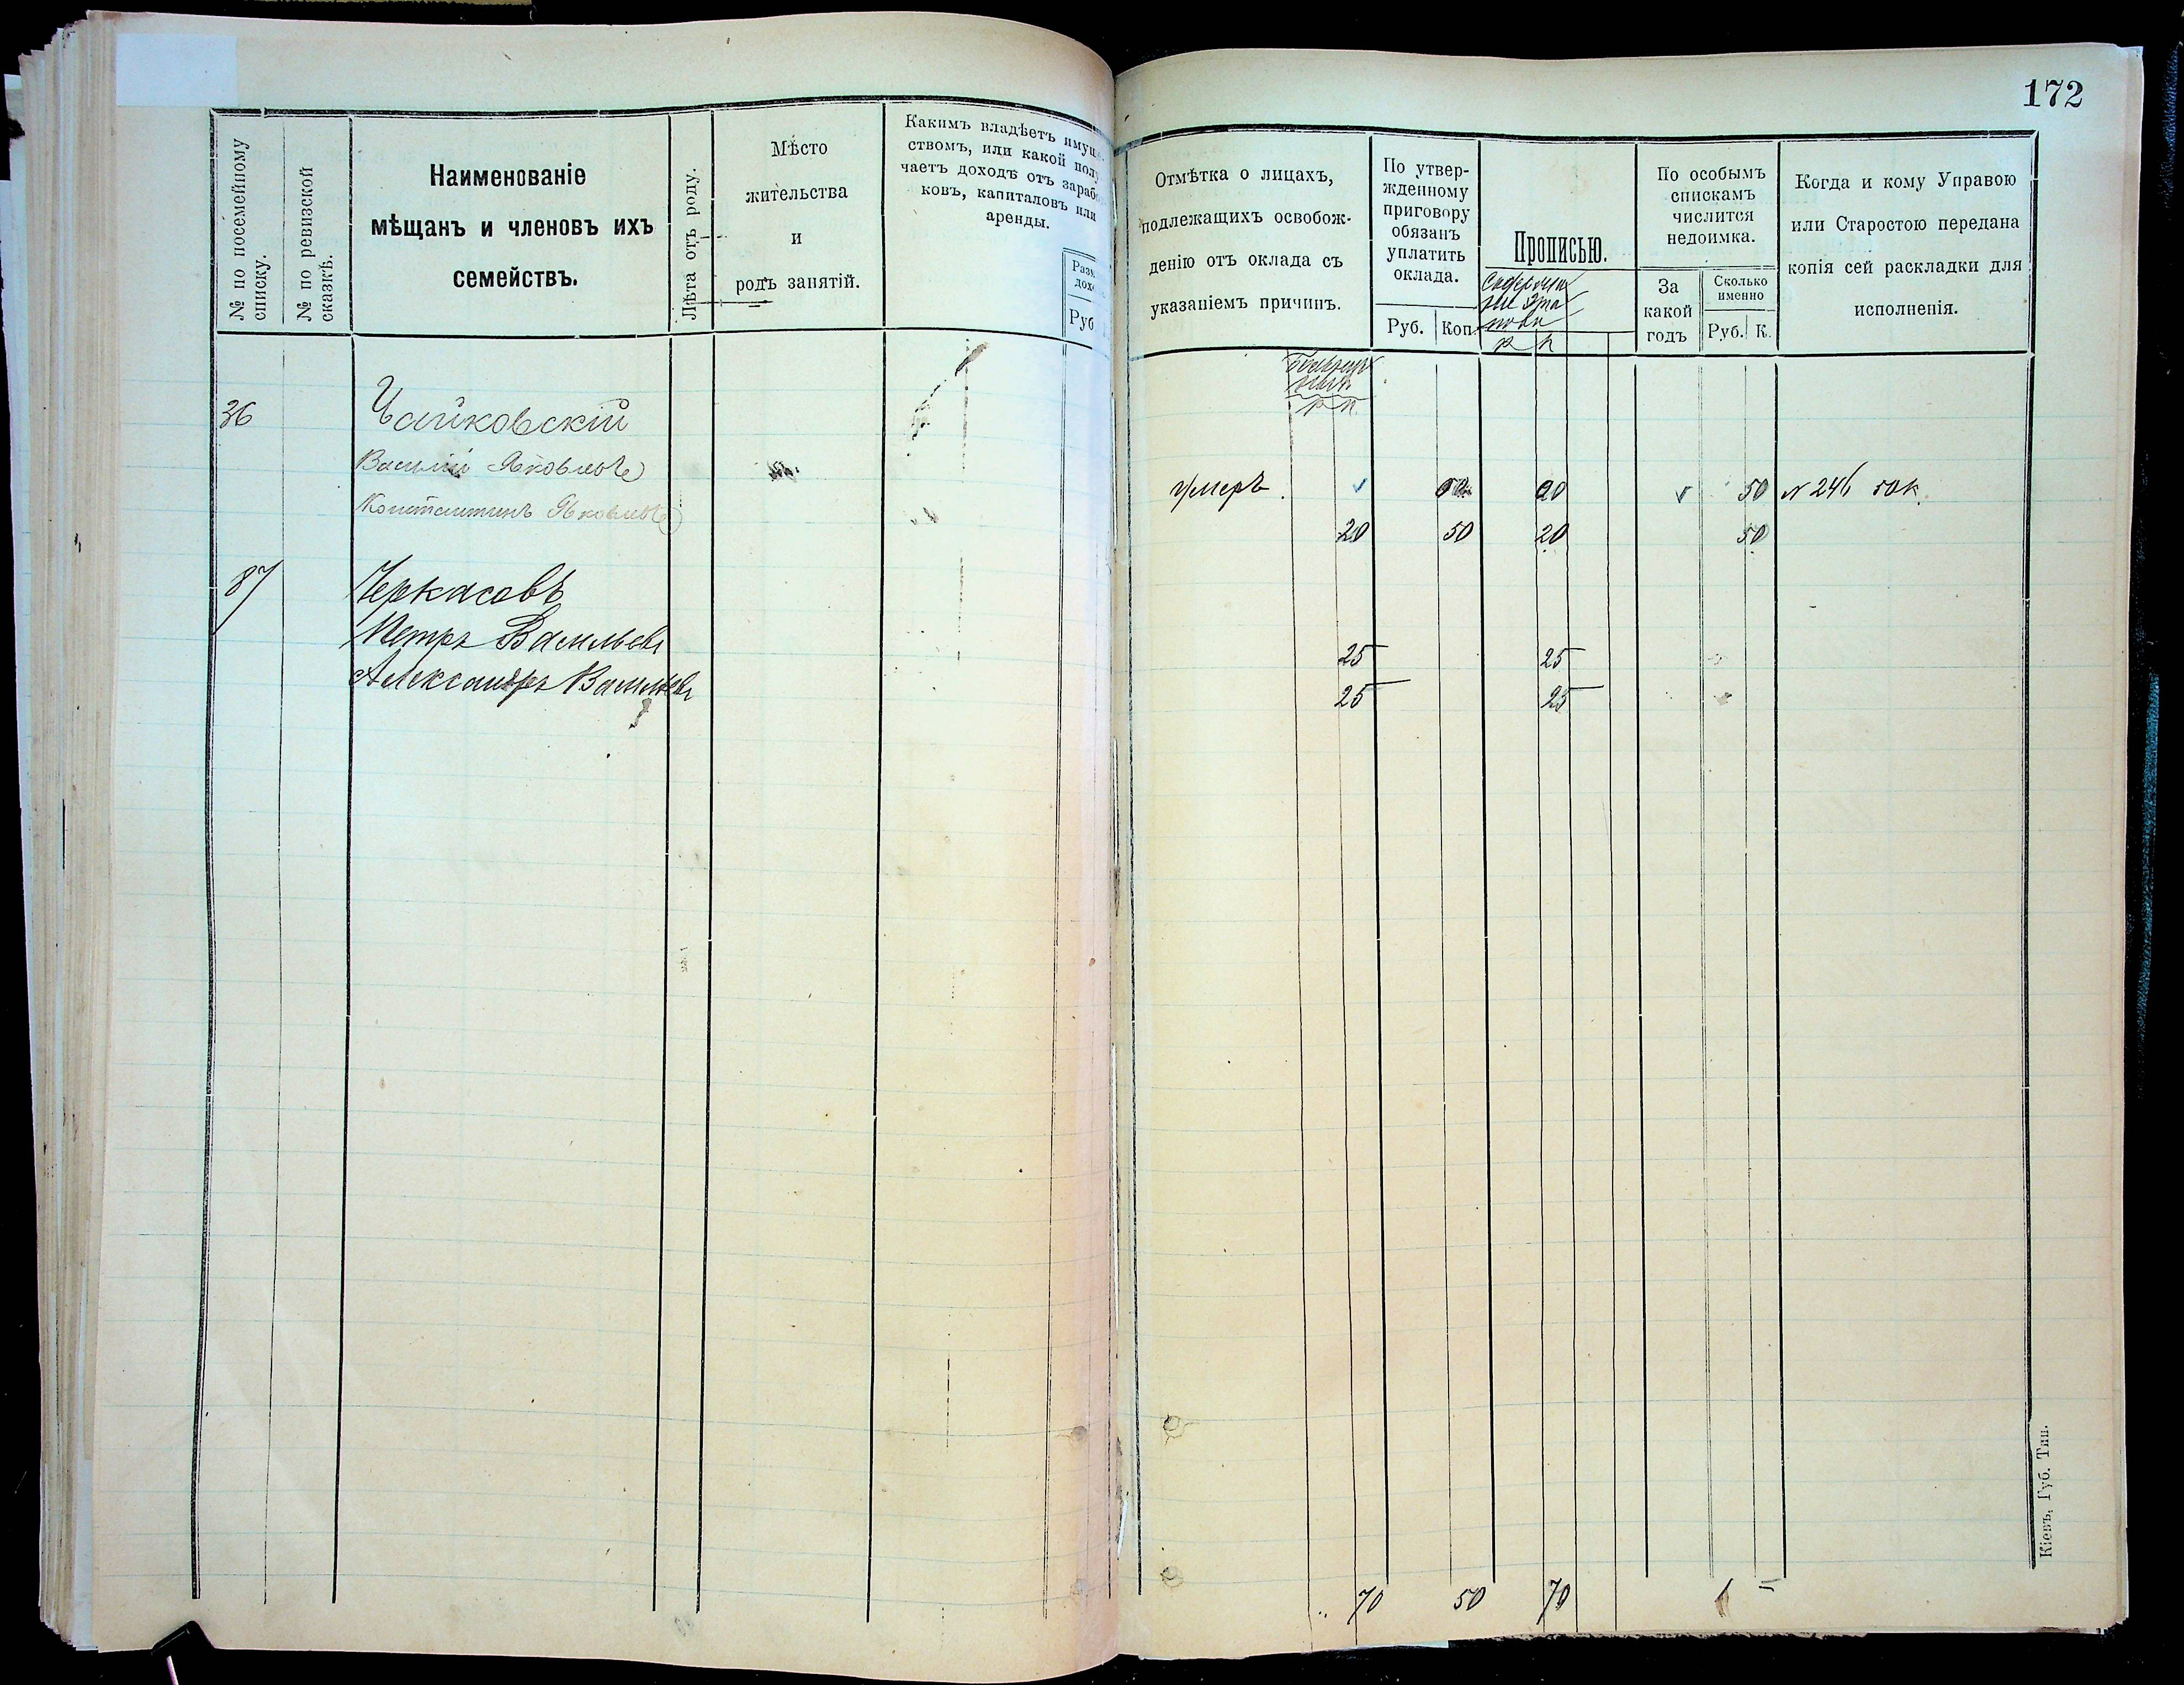 172
№ по посемейному
списку.
№ по ревизской
сказкѣ.
Наименованіе
мѣщанъ и членовъ ихъ
семействъ.
Лѣта отъ роду.
Мѣсто
жительства
и
родъ занятій.
Какимъ владѣетъ имущ
ствомъ, или какой полу
чаетъ доходъ отъ зарабо
ковъ, капиталовъ или
аренды.
Разм
дохо
Руб
Отмѣтка о лицахъ,
подлежащихъ освобож-
денію отъ оклада съ
указаніемъ причинъ.
По утвер-
жденному
приговору
обязанъ
уплатить
оклада.
Руб.
Коп.
Прописью.
р к
По особымъ
спискамъ
числится
недоимка.
За
какой
годъ
Сколько
именно
Руб. К.
Когда и кому Управою
или Старостою передана
копія сей раскладки для
исполненія.
р к
36 Чайковскій
Василій Яковлевъ умеръ. 20 50 № 246 50 к.
Константинъ Яковлевъ 20 50 20 50
87 Черкасовъ
Петръ Васильевъ 25 25
Александръ Васильевъ 25 25
70 50 70 1
Кіевъ, Губ. Тип.